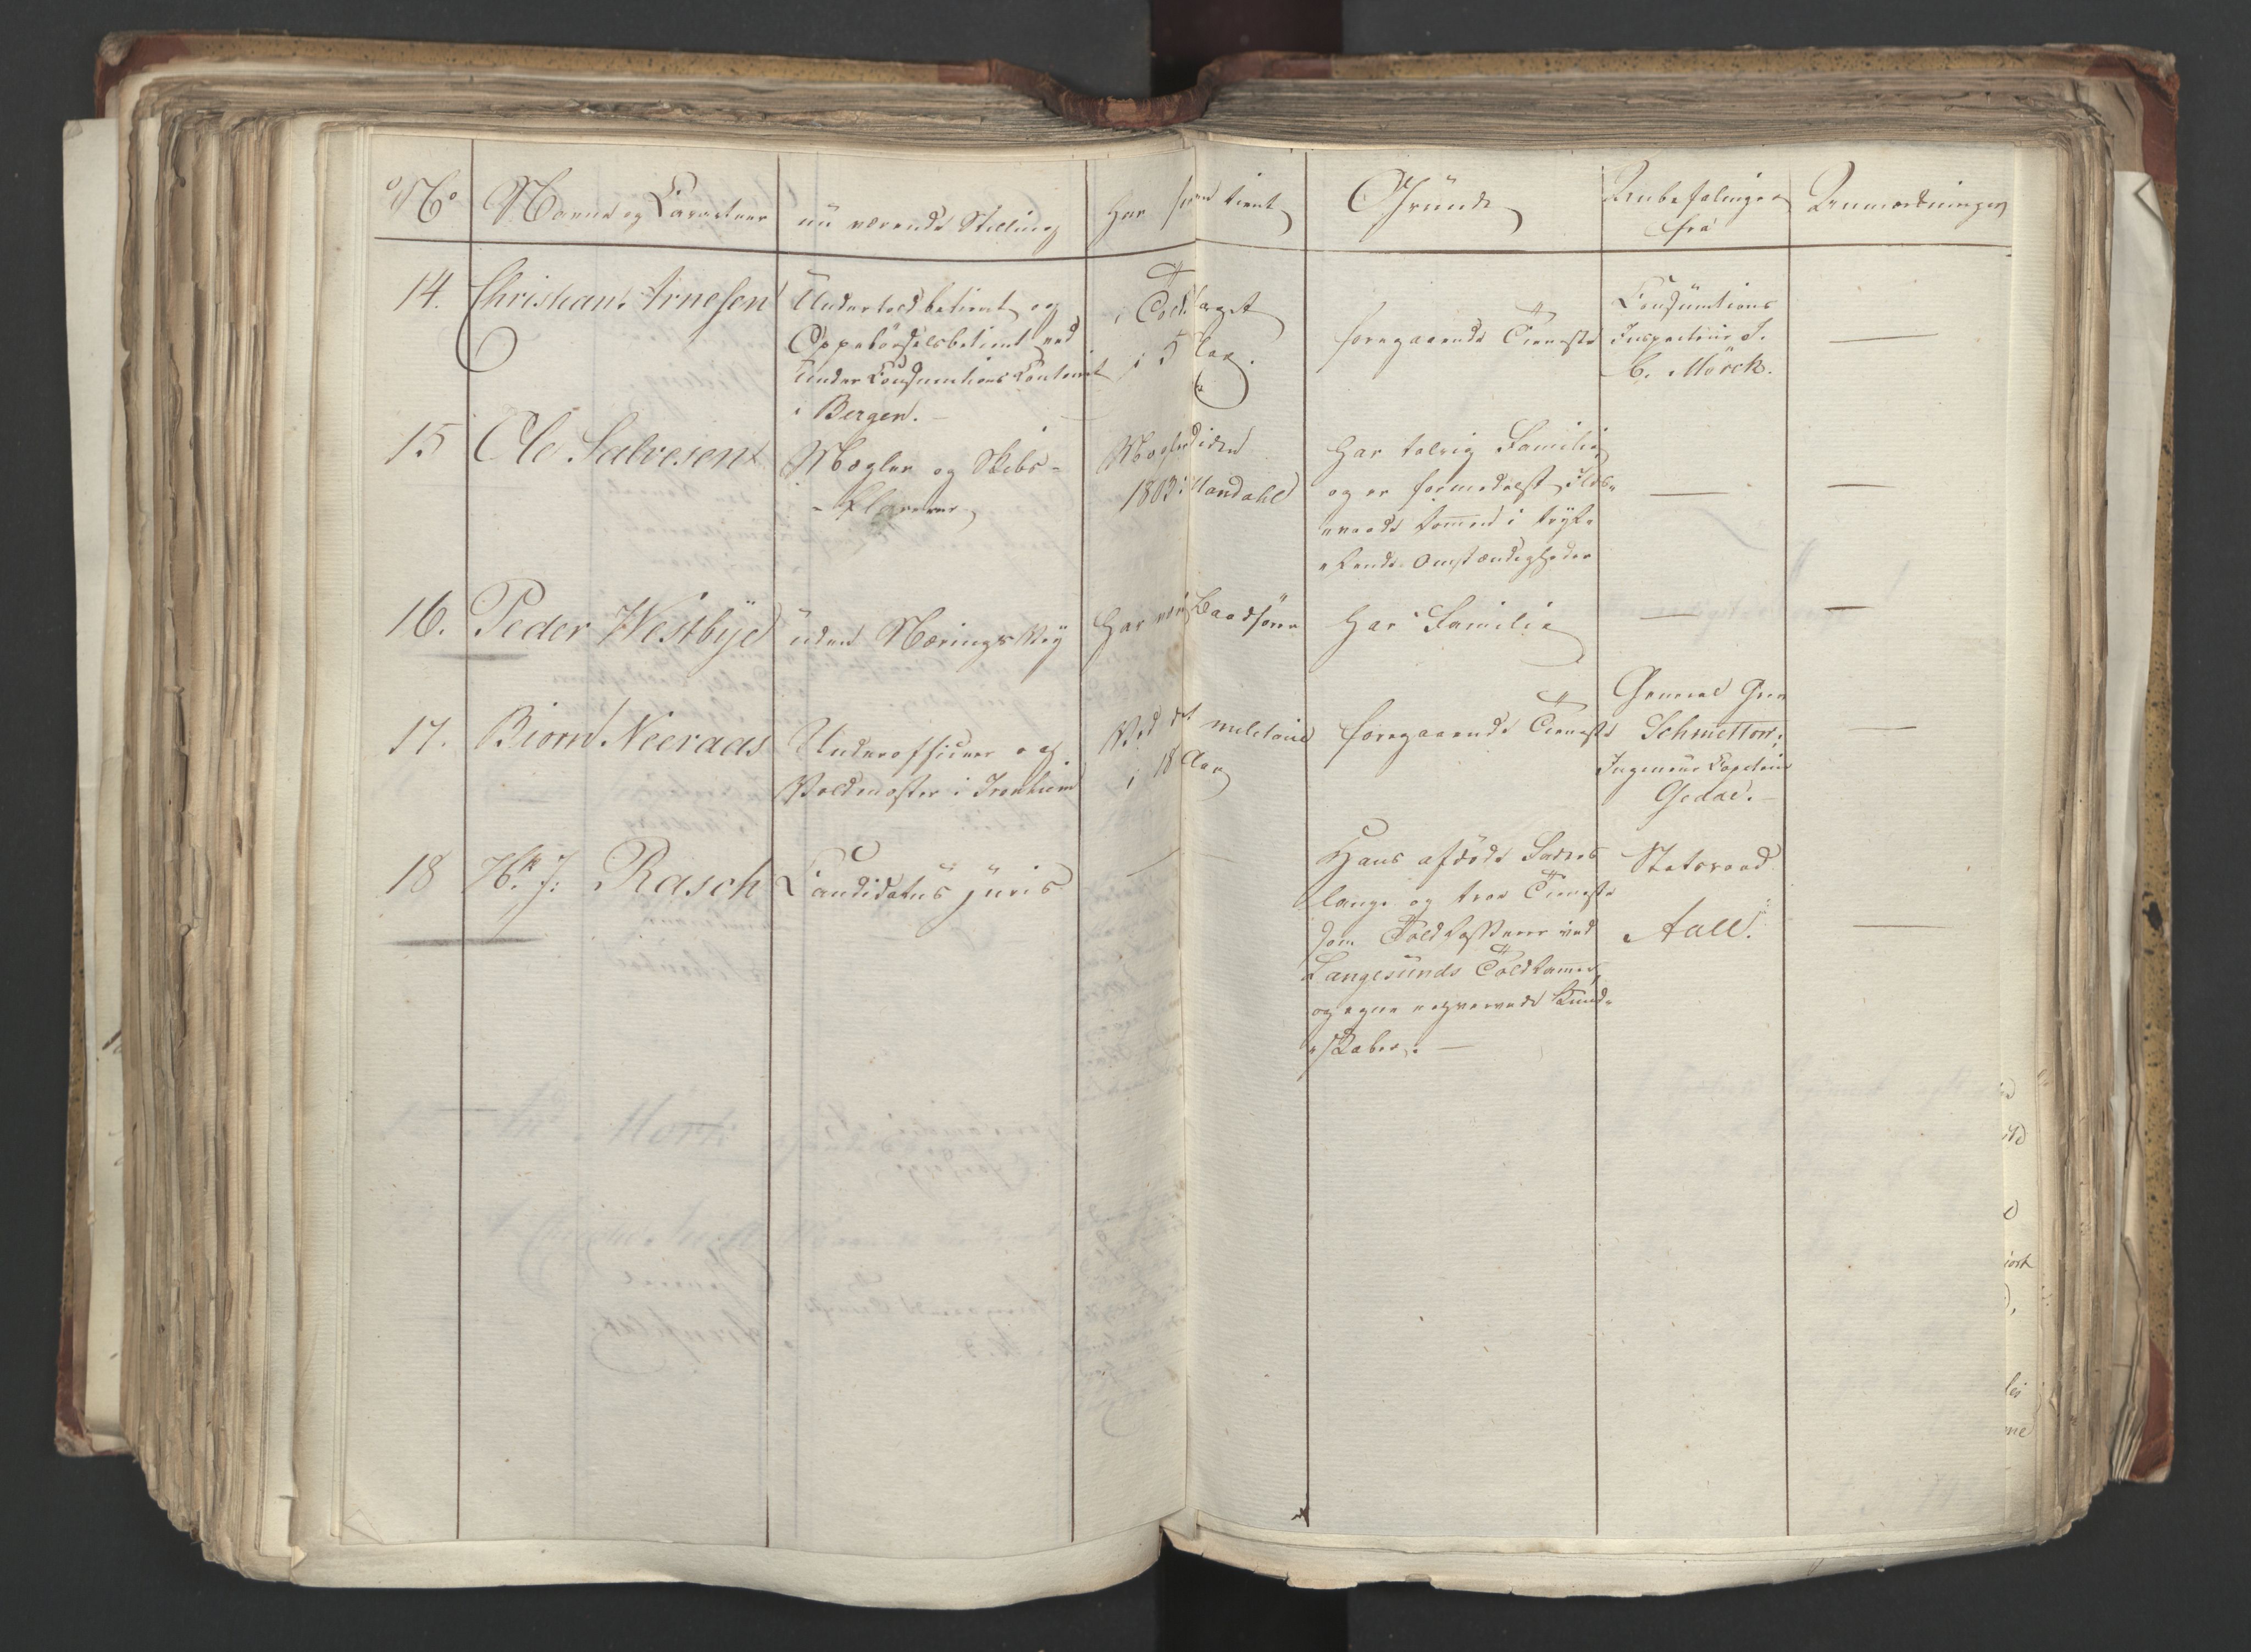 No
Navne og Caracteer
nu værende Stilling
Har forn tient
Grunde
Anbefalinger
fra
Anmærkninger
14.
Christian Arnesen
Undertoldbetient og
Oppebörselsbetient ved
Under Consumtions Contoiret
i Bergen. –
i Toldfaget
i 5 Aar.
foregaaende Tieneste
Consumtions
Inspecteur J.
C. Mörck.
—
15
Ole Salvesen
Mægler og Skibs-
-Clarerer
Mægler siden
1803 i Mandahl
Har talrig Familie
og er formedelst Ilds-
vaade kommen i tryk-
kende Omstændigheder
—
—
16.
Peder Westbye
uden Nærings Vey
Har været Baadförer
Har Familie
—
—
17.
Biorn Neeraas
Underofficeer og
Voldmester i Tronhiem
Ved det militaire
i 18 Aar
foregaaende Tieneste
General Grev
Schmettow;
Ingenieur Capitain
Gedde. –
—
18
Hr. J: Rasch
Candidatus juris
—
Hans afdöde Faders
lange og troe Tieneste
som Toldkasserer ved
Langesunds Toldkammer,
og egne erhvervede Kund-
skaber. —
Statsraad
Aall.
—